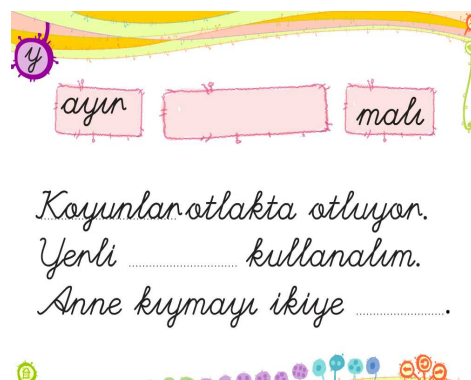 y
ayır
malı
Koyunlar otlakta otluyor.
Yerli ............ kullanalım.
Anne kıymayı ikiye ............ .